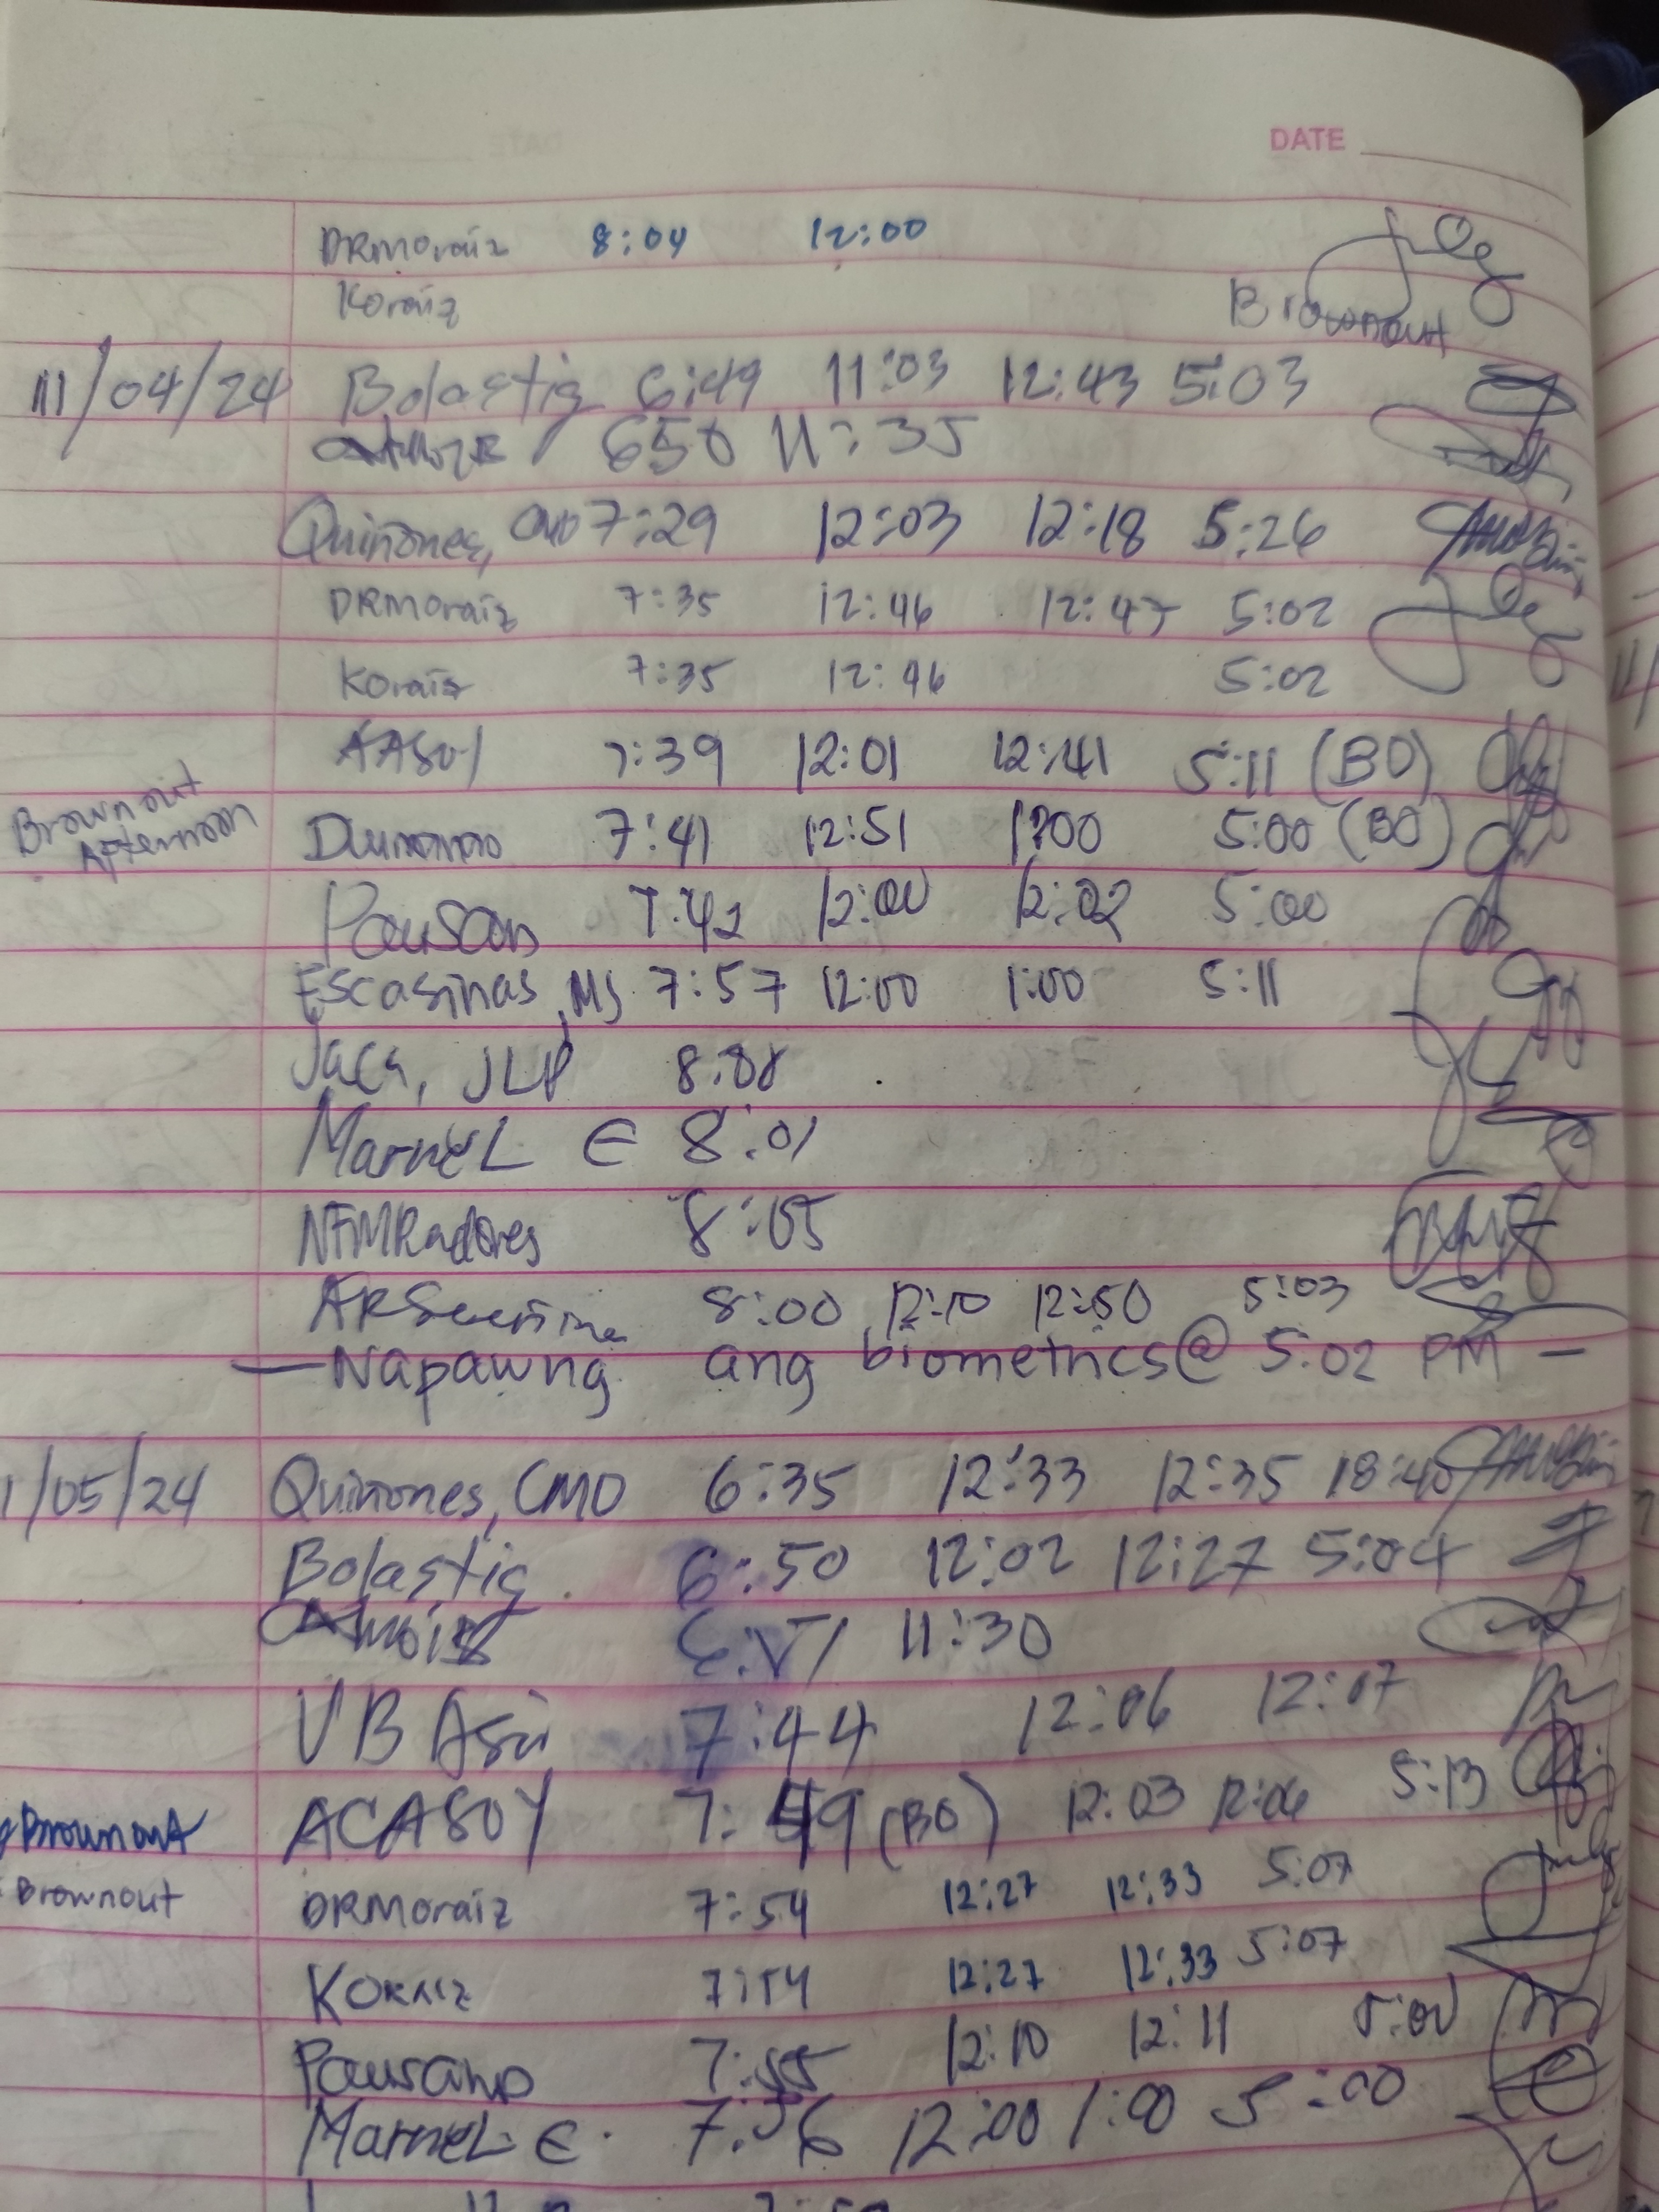 DATE
DRMoraiz 8:04 12:00
Koraiz Brownout
11/04/24 Bolastig 6:49 11:03 12:43 5:03
650 11:35
Quiñones, CMO 7:29 12:03 12:18 5:26
DRMoraiz 7:35 12:46 12:47 5:02
Koraiz 7:35 12:46 5:02
7:39 12:01 12:41 5:11 (BO)
Brownout
Afternoon
7:41 12:51 1:00 5:00 (BO)
7:42 12:00 12:02 5:00
Escasinas, MS 7:57 12:00 1:00 5:11
Jaca, JLP
MarneL E 8:01
NFMRadores 8:05
8:00 12:10 12:50 5:03
— Napawng ang biometrics @ 5:02 PM —
1/05/24 Quiñones, CMO 6:35 12:33 12:35 18:40
Bolastig 6:50 12:02 12:27 5:04
11:30
7:44 12:06 12:07
ACASOY (BO) 12:03 12:06 5:13
Brownout
Brownout DRMoraiz 7:54 12:27 12:33 5:07
KORAIZ 7:54 12:27 12:33 5:07
7:55 12:10 12:11 5:00
MarneL E. 7:56 12:00 1:00 5:00